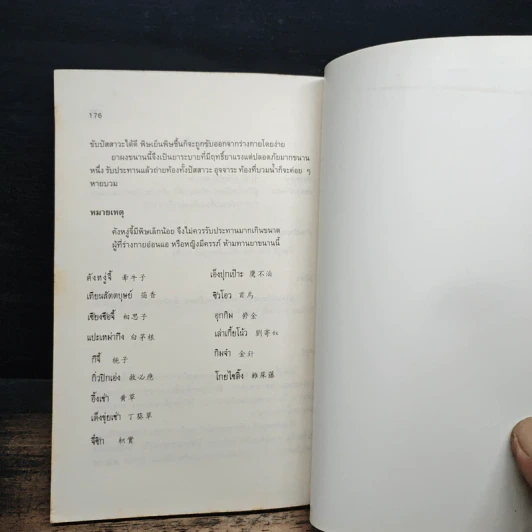 176
ขับปัสสาวะได้ดี พิษเย็นพิษชื้นก็จะถูกขับออกจากร่างกายโดยง่าย
ยาผงขนานนี้จึงเป็นยาระบายที่มีฤทธิ์ยาแรงแต่ปลอดภัยมากขนาน
หนึ่ง รับประทานแล้วถ่ายท้องทั้งปัสสาวะ อุจจาระ ท้องที่บวมน้ำก็จะค่อย ๆ
หายบวม
หมายเหตุ
คังหงู่จี้มีพิษเล็กน้อย จึงไม่ควรรับประทานมากเกินขนาด
ผู้ที่ร่างกายอ่อนแอ หรือหญิงมีครรภ์ ห้ามทานยาขนานนี้
คังหงู่จี้ 牽牛子
เทียนสัตตบุษย์ 茴香
เซียงชือจี้ 相思子
แปะเหม่ากึง 白茅根
กีจี้
กิ่วปิกเอ่ง 救必應
อึ้งเช่า 黄草
เต็งขุ่ยเช่า 丁葵草
จี้ซิก 枳實
เอ็งปุกเป๊าะ 鷹不泊
ซิวโอว 首烏
อุกกิม 欝金
เล่าเกี้ยโน้ว 劉寄奴
กิมจำ 金針
โกยไซติ๊ง 雞屎藤